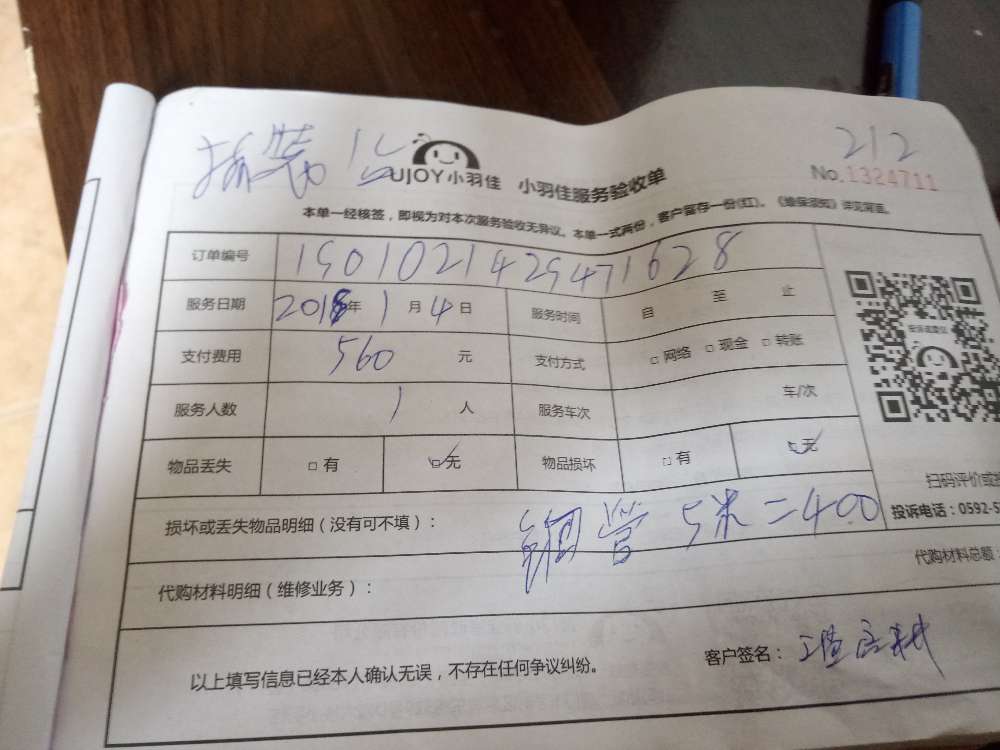 拆装1台 212
UJOY小羽佳 小羽佳服务验收单 No.1324711
本单一经核签，即视为对本次服务验收无异议。本单一式两份，客户留存一份(红)。《维保须知》详见背面。
订单编号 15010214295471628
服务日期 2018年1月4日 服务时间 自 至 止
支付费用 560 元 支付方式 □网络 □现金 □转账
服务人数 1 人 服务车次 车/次
物品丢失 □有 □无 物品损坏 □有 □无
扫码评价或
损坏或丢失物品明细（没有可不填）： 铜管 5米=400 投诉电话：0592-5
代购材料明细（维修业务）： 代购材料总额
以上填写信息已经本人确认无误，不存在任何争议纠纷。 客户签名：